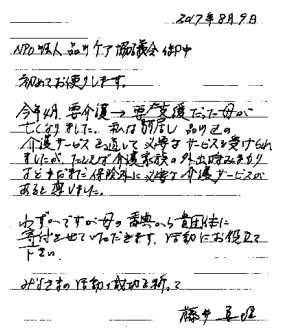 2017年8月9日
NPO法人 品川ケア協議会 御中
初めてお便りします。
今年4月、要介護→要支援だった母が
亡くなりました。私は 品川区の
介護サービスを通して必要なサービスを受けられ
ましたが、たとえば介護家族の外出時みまもり
などまだまだ保険外に必要な介護サービスが
あると思いました。
わずかですが母の香典から貴団体に
寄付させていただきます。活動にお役立て
下さい。
みなさまの活動の成功を祈って
藤井